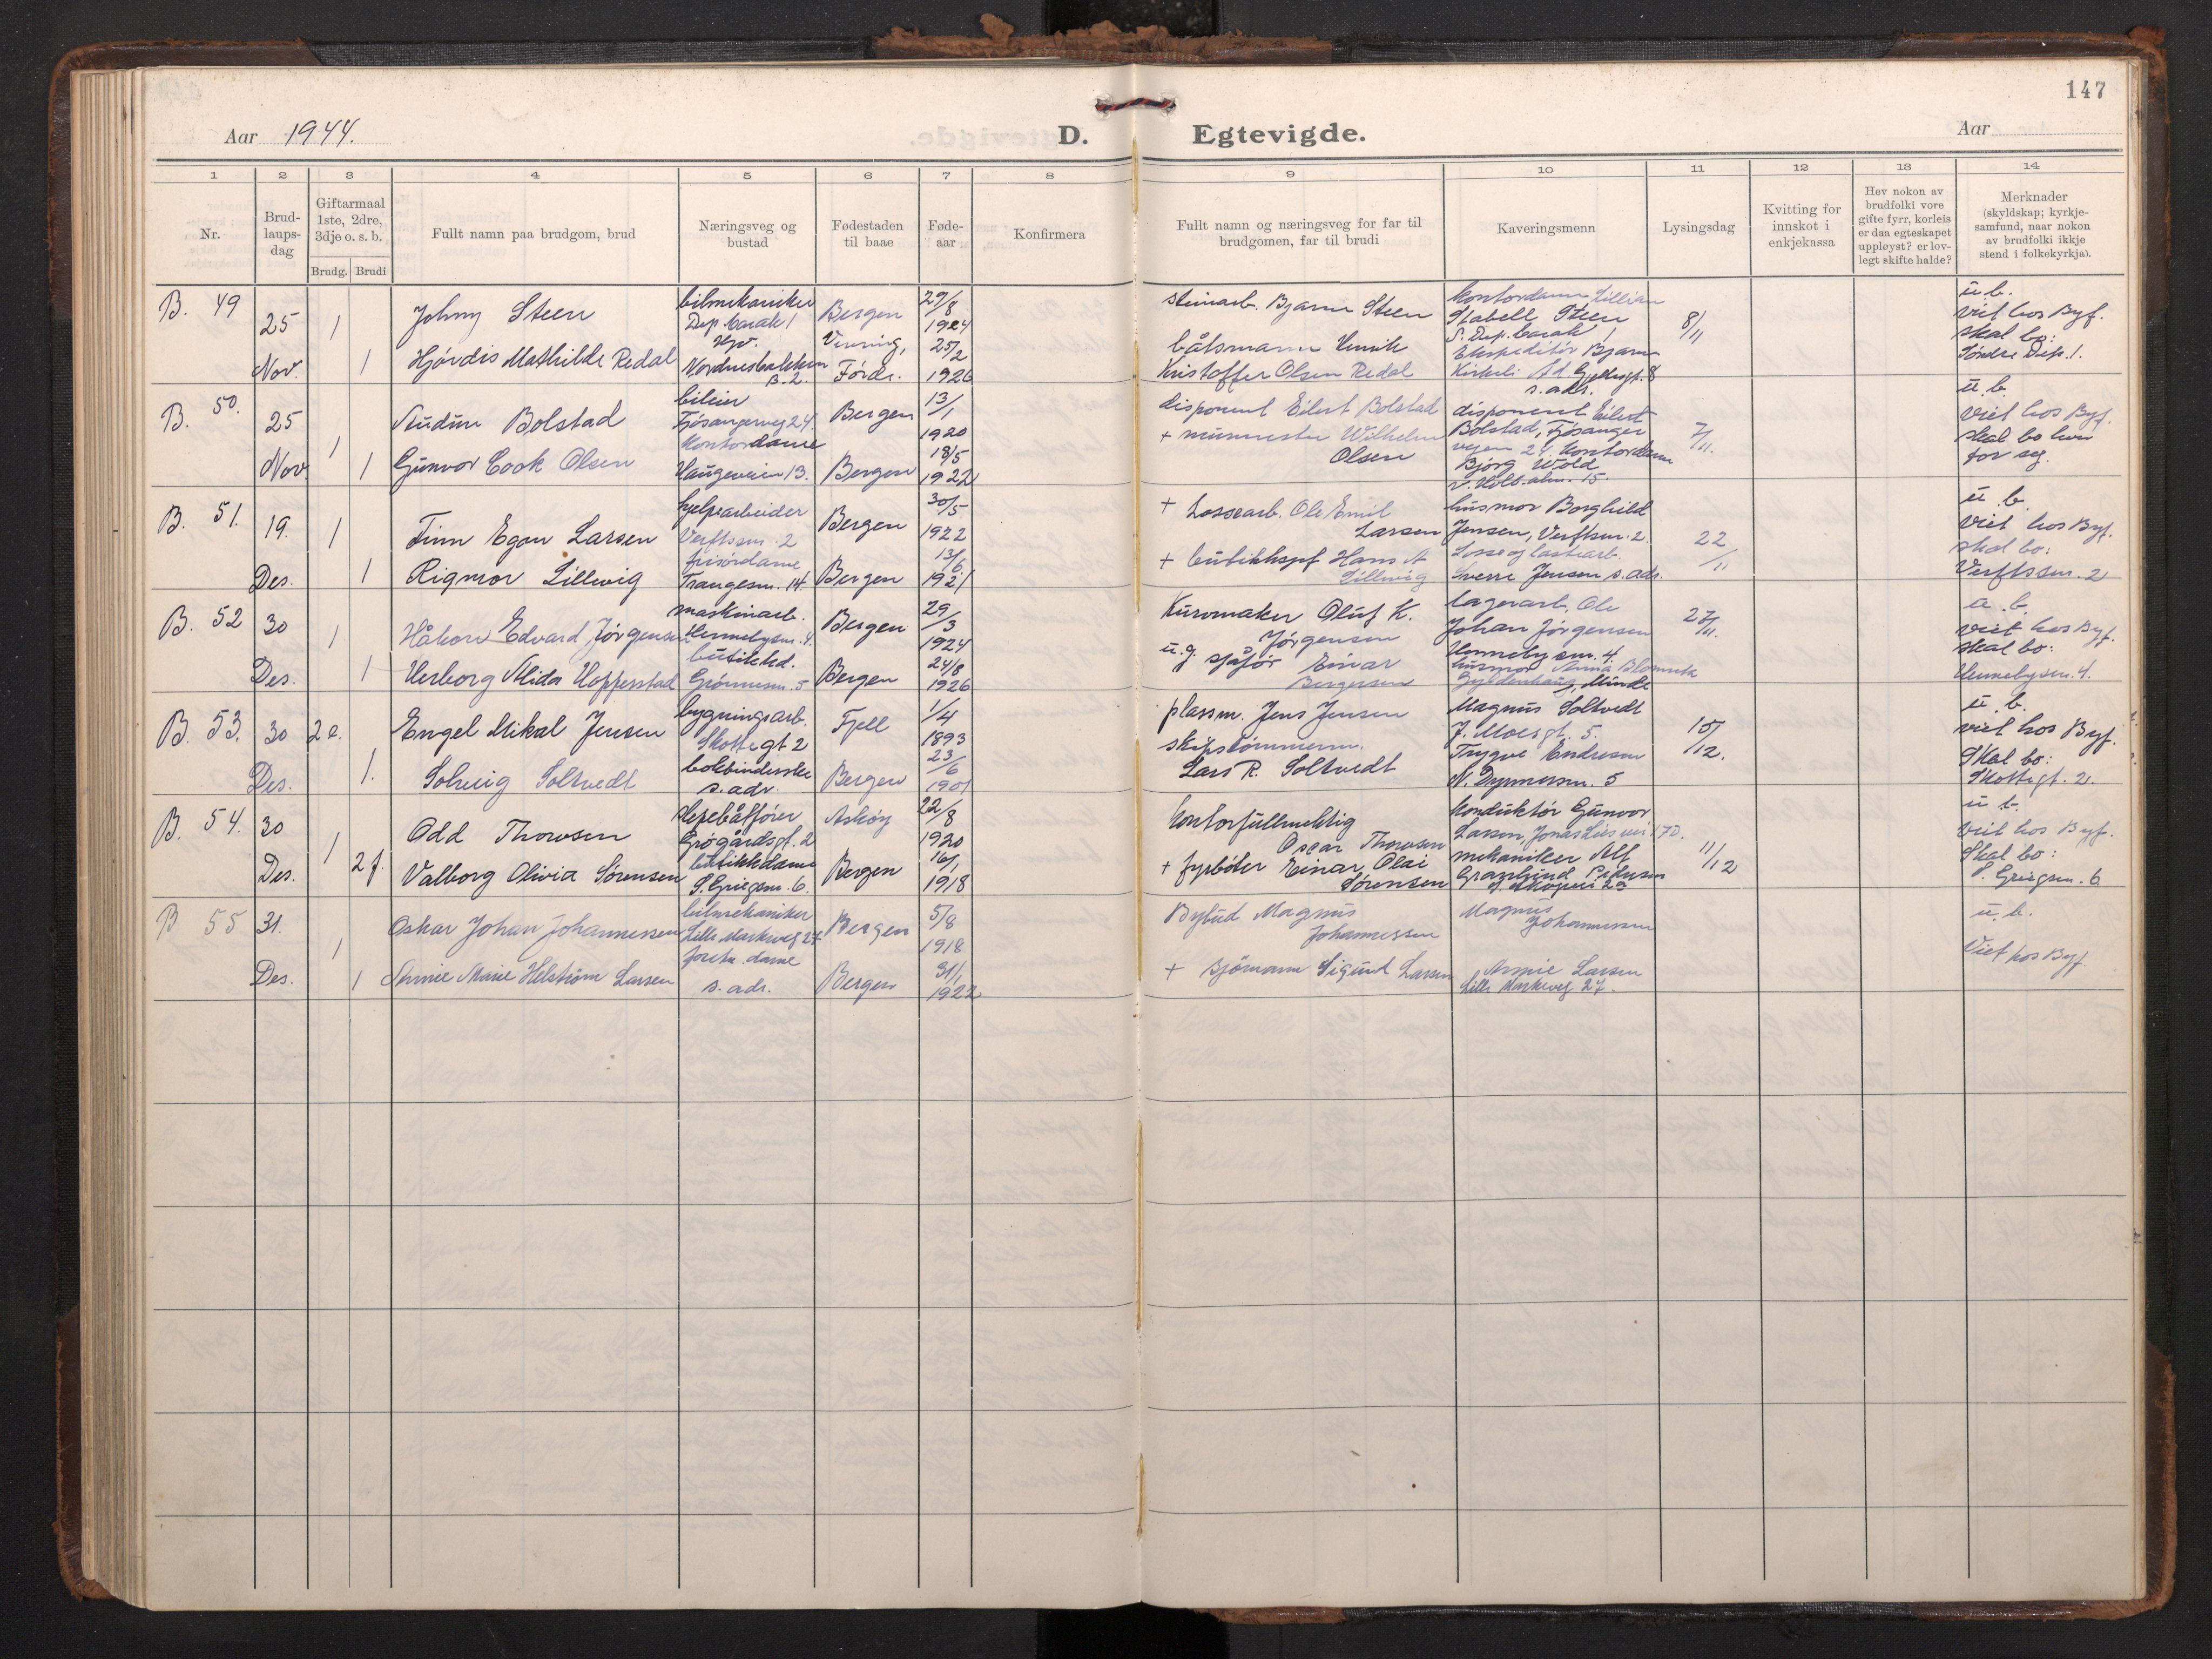 147
Aar 1944.
D.
Egtevigde.
Aar
1 2 3 4 5 6 7 8 9 10 11 12 13 14
Nr.
Brud-
laups-
dag
Giftarmaal
1ste, 2dre,
3dje o. s. b.
Brudg. Brudi
Fullt namn paa brudgom, brud
Næringsveg og
bustad
Fødestaden
til baae
Føde-
aar
Konfirmera
Fullt namn og næringsveg for far til
brudgomen, far til brudi
Kaveringsmenn
Lysingsdag
Kvitting for
innskot i
enkjekassa
Hev nokon av
brudfolki vore
gifte fyrr, korleis
er daa egteskapet
uppløyst? er lov-
legt skifte halde?
Merknader
(skyldskap; kyrkje-
samfund, naar nokon
av brudfolki ikkje
stend i folkekyrkja).
B. 49
25
Nov.
1
1
Johny Steen
Hjørdis Mathilde Redal
bilmekaniker
Dep. barak 1
Hjv.
Nordnesbakken
B. 2.
Bergen
Førde.
29/8
1924
25/2
1926
steinarb. Bjarne Steen
båtsmann Henrik
Kristoffer Olsen Redal
kontordame Lillian
Stabell Steen
S. Dep. barak 1
Ekspeditør Bjarne
s. adr.
8/11
u. b.
viet hos Byf.
skal bo:
Søndre Dep. 1.
B. 50.
25
Nov
1
1
Audun Bolstad
Gunvor Cook Olsen
bileier
Fjøsangerveg 24.
Kontordame
Haugeveien 13.
Bergen
Bergen
13/1
1920
18/5
1922
disponent Eilert Bolstad
+ murmester Wilhelm
Olsen
disponent Eilert
Bolstad, Fjøsanger
vejen 24. Kontordame
Bjørg Wold
v. Holb. alm. 15.
7/11.
u. b.
viet hos Byf.
skal bo hver
for seg.
B. 51.
19.
Des.
1
1
Finn Egon Larsen
Rigmor Lillevig
hjelpearbeider
Verftssm. 2
frisørdame
Trangesm. 14.
Bergen
Bergen
30/5
1922
13/6
1921
+ Lossearb. Ole Emil
Larsen
+ butikksjef Hans A
Lillevig
husmor Borghild
Jensen, Verftsm. 2.
Losse og lastearb.
Sverre Jensen s. adr.
22/11
u. b.
viet hos Byf.
skal bo:
Verftssm. 2
B. 52
30
Des.
1
1
Håkon Edvard Jørgensen
Herborg Alida Hopperstad
maskinarb.
Hennebysm. 4.
butikkd.
Grønnesm. 5
Bergen
Bergen
29/3
1924
24/8
1926
Kurvmaker Oluf K.
Jørgensen
u. g. sjåfør Einar
Bergersen
lagerarb. Ole
Johan Jørgensen
Henneby sm. 4.
husmor Anna
Gyldenhaug, Minde
27/11.
u. b.
viet hos Byf.
skal bo:
Hennebysm. 4.
B. 53.
30
Des.
2 e.
1.
Engel Mikal Jensen
Solveig Soltvedt
bygningsarb.
Skottegt 2
bokbinderske
s. adr.
Fjell
Bergen
1/4
1893
23/6
1901
plassm. Jens Jensen
skipstømmerm.
Lars R. Soltvedt
Magnus Soltvedt
J. Moesgt. 5.
Trygve Endresen
N. Dyrmersm. 5
15/12.
u. b.
viet hos Byf.
Skal bo:
Skottegt. 2.
B. 54.
30
Des.
1
2 f.
Odd Thowsen
Valborg Olivia Sørensen
slepebåtfører
Grógårdsgt. 2
butikkdame
S. Griegsm. 6.
Askøy
Bergen
22/8
1920
16/1
1918
Kontorfullmektig
Oscar Thowsen
+ fyrbøter Einar Olai
Sørensen
konduktør Gunvor
Larsen, Jonas Lies vei 70.
mekaniker Alf
Pedersen
11/12
u. b.
viet hos Byf.
Skal bo:
S. Griegsm. 6
B 55
31.
Des.
1
1
Oskar Johan Johannessen
Annie Marie Helstrøm Larsen
bilmekaniker
Lille Markeveg 27
forretn. dame
s. adr.
Bergen
Bergen
5/8
1918
31/1
1922
Bybud Magnus
Johannessen
+ Sjømann Sigurd Larsen
Magnus
Johannessen
Annie Larsen
Lille Markeveg 27.
u. b.
Viet hos Byf.